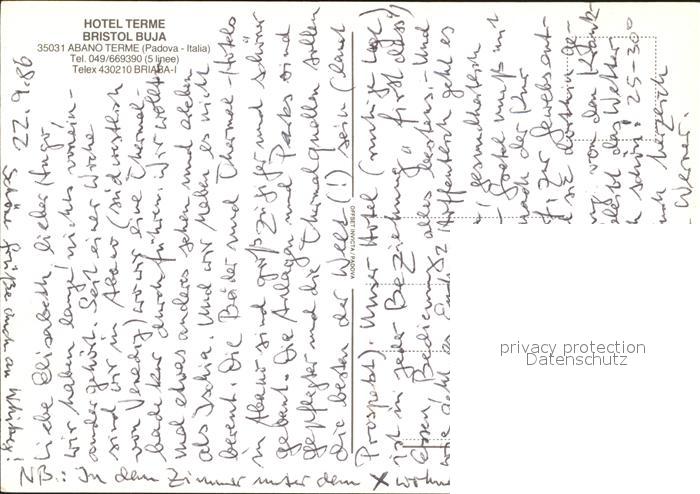 HOTEL TERME
BRISTOL BUJA
35031 ABANO TERME (Padova - Italia)
Tel. 049/669390 (5 linee)
Telex 430210 BRIABA-I
22.9.86
Liebe Elisabeth, lieber Hugo,
wir haben lange nichts vonein-
ander gehört. Seit einer Woche
sind wir in Abano (südwestlich
von Venedig) wo wir eine Thermal-
badekur durchführen. Wir wollten
mal etwas anderes sehen und
als Ischia. Und wir haben es nicht
bereut. Die Bäder und Thermal-Hotels
in Abano sind großzügiger und schöner
gebaut. Die Anlagen und Parks sind
gepflegter und die Thermalquellen sollen
die besten der Welt (!) sein (laut
Prospekt). Unser Hotel (ruhige Lage)
ist in jeder Beziehung "first class")
Essen, Bedienung alles bestens. Und
wie geht es Euch? Hoffentlich geht es
gesundheitlich
muß mit
nach der Kur
zur
sie dorthin
von den
das Wetter
schön: 25-30°
herzlich
Werner.
Schöne Grüße auch an
NB.: In dem Zimmer unter dem X wohn
OFFSET INVICTA/PADOVA
privacy protection
Datenschutz